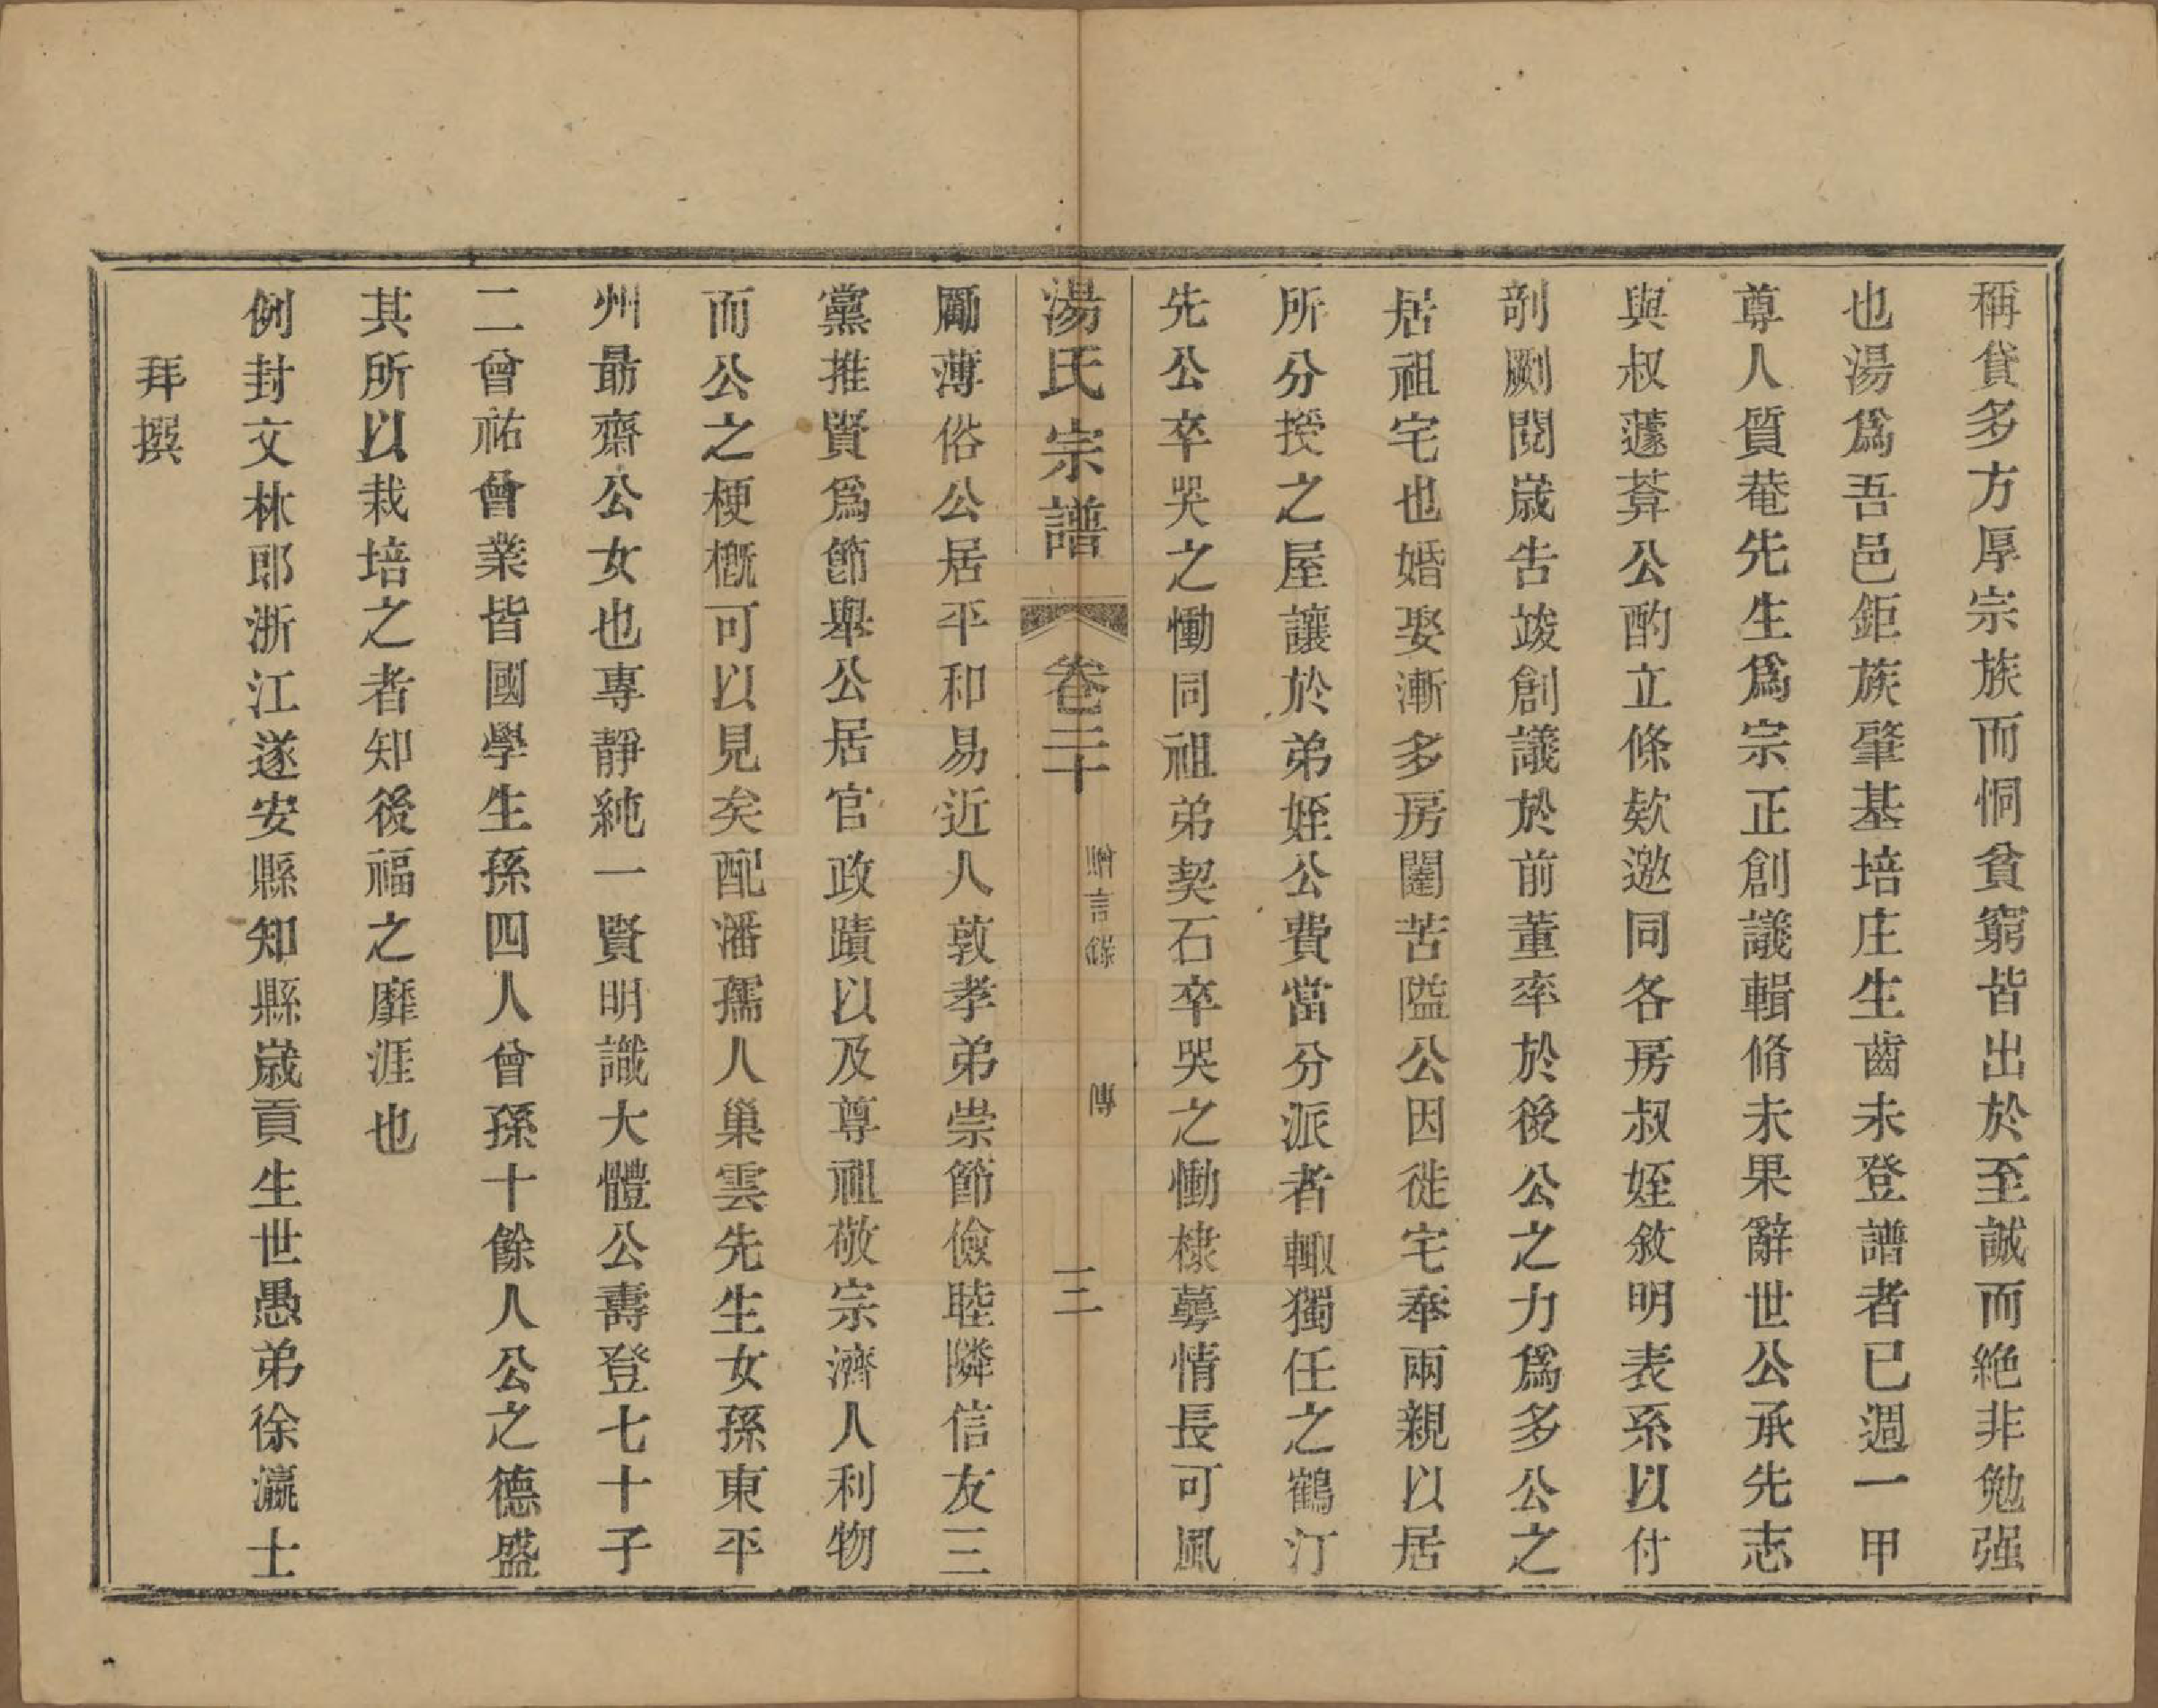 稱貸多方厚宗族而恫貧窮皆出於至誠而絶非勉强
也湯爲吾邑鉅族肇基培庄生齒未登譜者已週一甲
尊人質菴先生爲宗正創議輯脩未果辭世公承先志
與叔蘧莽公酌立條欵邀同各房叔姪敘明表系以付
剞劂閱歲告竣創議於前董率於後公之力爲多公之
居祖宅也婚娶漸多房闈苦隘公因徙宅奉兩親以居
所分授之屋讓於弟姪公費當分派者輙獨任之鶴汀
先公卒哭之慟同祖弟契石卒哭之慟棣蕚情長可風
湯氏宗譜 卷二十 傳 三
勵薄俗公居平和易近人敦孝弟崇節儉睦隣信友三
黨推賢爲節舉公居官政蹟以及尊祖敬宗濟人利物
而公之梗概可以見矣配潘孺人巢雲先生女孫東平
州勗齋公女也專靜純一賢明識大體公壽登七十子
二曾祐曾業皆國學生孫四人曾孫十餘人公之德盛
其所以栽培之者知後福之靡涯也
例封文林郎浙江遂安縣知縣歲貢生世愚弟徐瀛士
拜撰